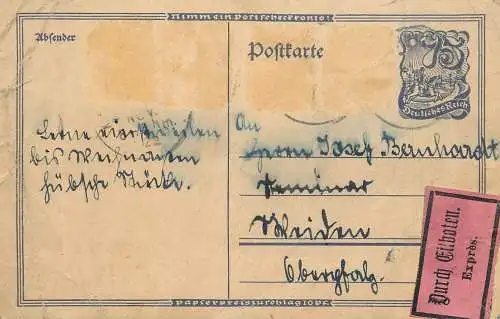 Nimm ein Postscheckkonto!
Absender
Postkarte
75
Deutsches Reich
Lerne vierst weilen
bis Weihnachten
hübsche Stücke.
An
Herrn Josef Bernhardt
Seminar
Weiden
Oberpfalz.
Durch Eilboten.
Exprès.
Papierpreiszuschlag 10 Pf.